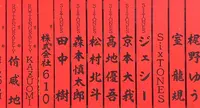 梶野ゆう
室龍規
SixTONES
SixTONES ジェシー
SixTONES 京本大我
SixTONES 高地優吾
SixTONES 松村北斗
SixTONES 森本慎太郎
SixTONES 田中樹
株式会社610
KAZUOMI
侑威地